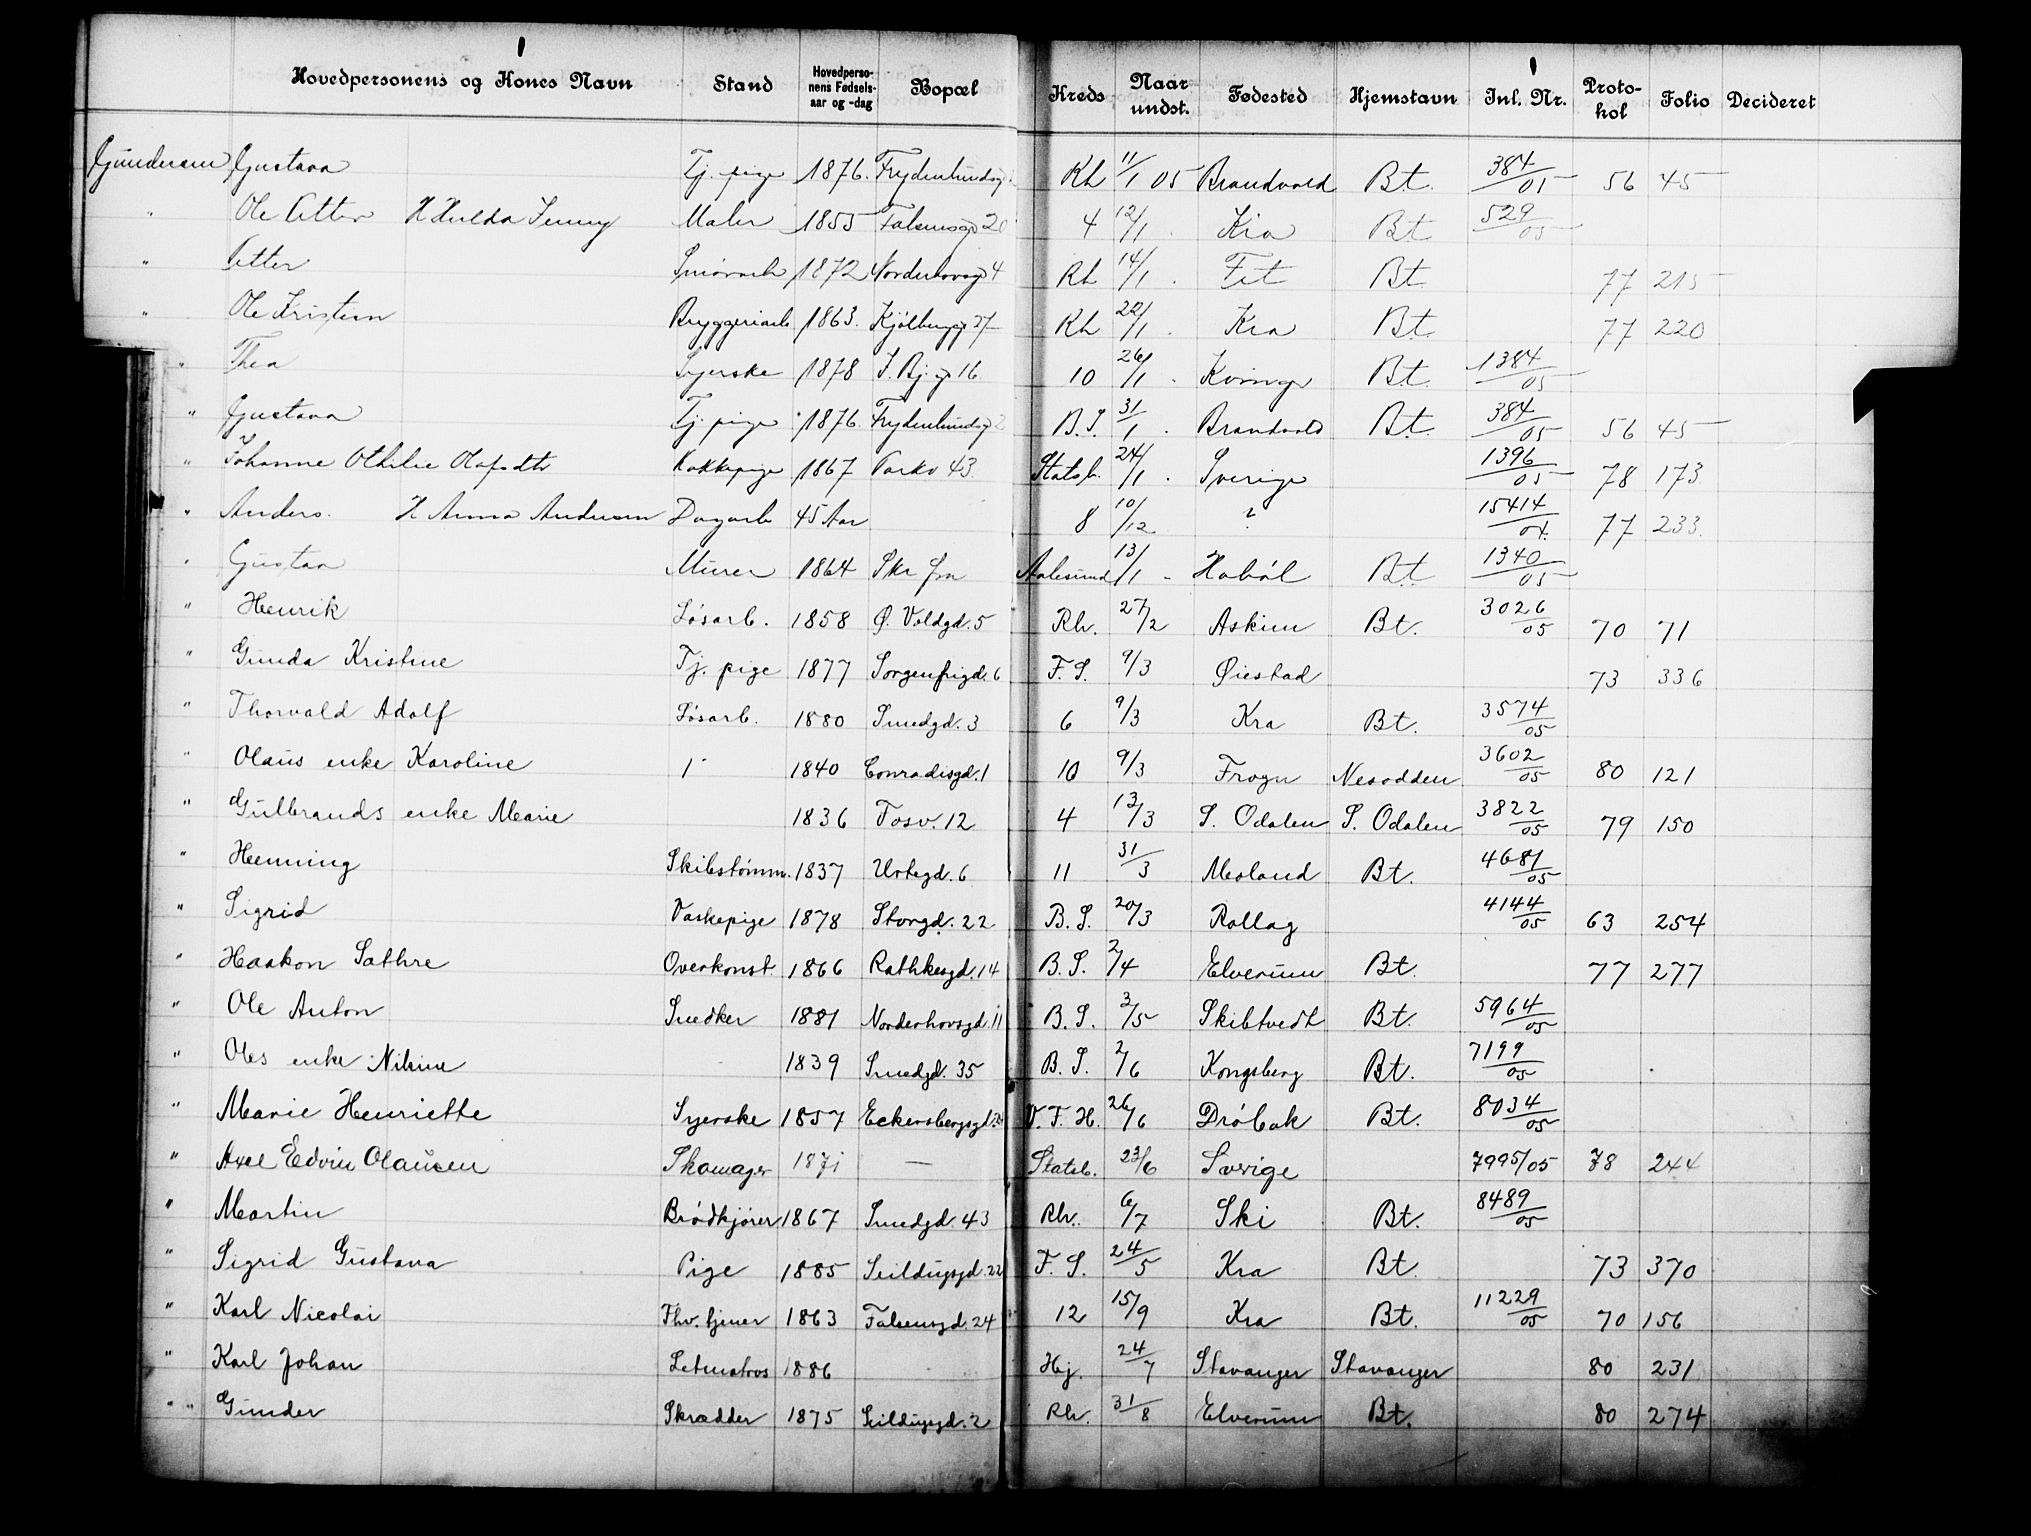 Hovedpersonens og Kones Navn Stand Hovedperso- nens Fødsels- aar og -dag Bopæl Kreds Naar undst. Fødested Hjemstavn Inl. Nr. Proto- kol Folio Decideret
Gundersen Gustava Tj. pige 1876. Frydenlundsg Rh 11/1 05 Brandvold Bt. 384/05 56 45
" Ole Petter H Hulda Jenny Maler 1855 Falsensg 20 4 12/1 Kra Bt 529/05
" Petter 1872 Norderhovsg 4 Rh 14/1 Fet Bt 77 215
" Ole Kristian Bryggeriarb 1863. Kjölbergg 27 Rh 22/1 Kra Bt. 77 220
" Thea Syerske 1878 S. Bj. g 16 10 26/1 Kvinger Bt. 1384/05
" Gustava Tj. pige 1876. Frydenlundsg 2 B. S. 31/1 Brandvold Bt. 384/05 56 45
" Johanne Othilie Olafsdtr Kokkepige 1867 Parkv 43. Statsb. 24/1 Sverige 1396/05 78 173
" Anders. H Anna Andersen Dagarb 45 Aar 8 10/12 ? 15414/04. 77 233.
" Gustav Murer 1864 Skr fra Aalesund 13/1 Hobøl Bt 1340/05
" Henrik Løsarb. 1858 Ø. Voldgd. 5 Rh. 27/2 Askim Bt. 3026/05 70 71
" Gunda Kristine Tj. pige 1877 Sorgenfrigd. 6 F. S. 9/3 Øiestad 73 336
" Thorvald Adolf Løsarb. 1880 Smedgd. 3 6 9/3 Kra Bt. 3574/05
" Olaus enke Karoline 1840 Conradisgd. 1 10 9/3 Frogn Nesodden 3602/05 80 121
" Gulbrands enke Marie 1836 Fosv. 12 4 13/3 S. Odalen S. Odalen 3822/05 79 150
" Henning Skibstømm. 1837 Urtegd. 6 11 31/3 Moland Bt. 4681/05
" Sigrid Vaskepige 1878 Storgd. 22 B. S. 20/3 Rollag 4144/05 63 254
" Haakon Sathre Overkonst. 1866 Rathkesgd. 14 B. S. 2/4 Elverum Bt. 77 277
" Ole Anton Snedker 1881 Norderhovsgd. 11 B. S. 3/5 Skibtvedt Bt. 5964/05
" Oles enke Nilsine 1839 Smedgd. 35 B. S. 2/6 Kongsberg Bt. 7199/05
" Marie Henriette Syerske 1857 Eckersbergsgd. V. F. H. 26/6 Drøbak Bt. 8034/05
" Axel Edvin Olausen Skomager 1871 — Statsb. 23/6 Sverige 7995/05 78 244
" Martin Brødkjører 1867 Smedgd. 43 Rh. 6/7 Ski Bt. 8489/05
" Sigrid Gustava Pige 1885 Seildugsgd. 22 F. S. 24/5 Kra Bt. 73 370
" Karl Nicolai Thv. tjener 1863 Falsensgd. 24 12 15/9 Kra Bt. 11229/05 70 156
" Karl Johan Letmatros 1886 Hj. 24/7 Stavanger Stavanger 80 231
" " Gunder Skrædder 1875 Seildugsgd. 2 Rh. 31/8 Elverum Bt. 80 274